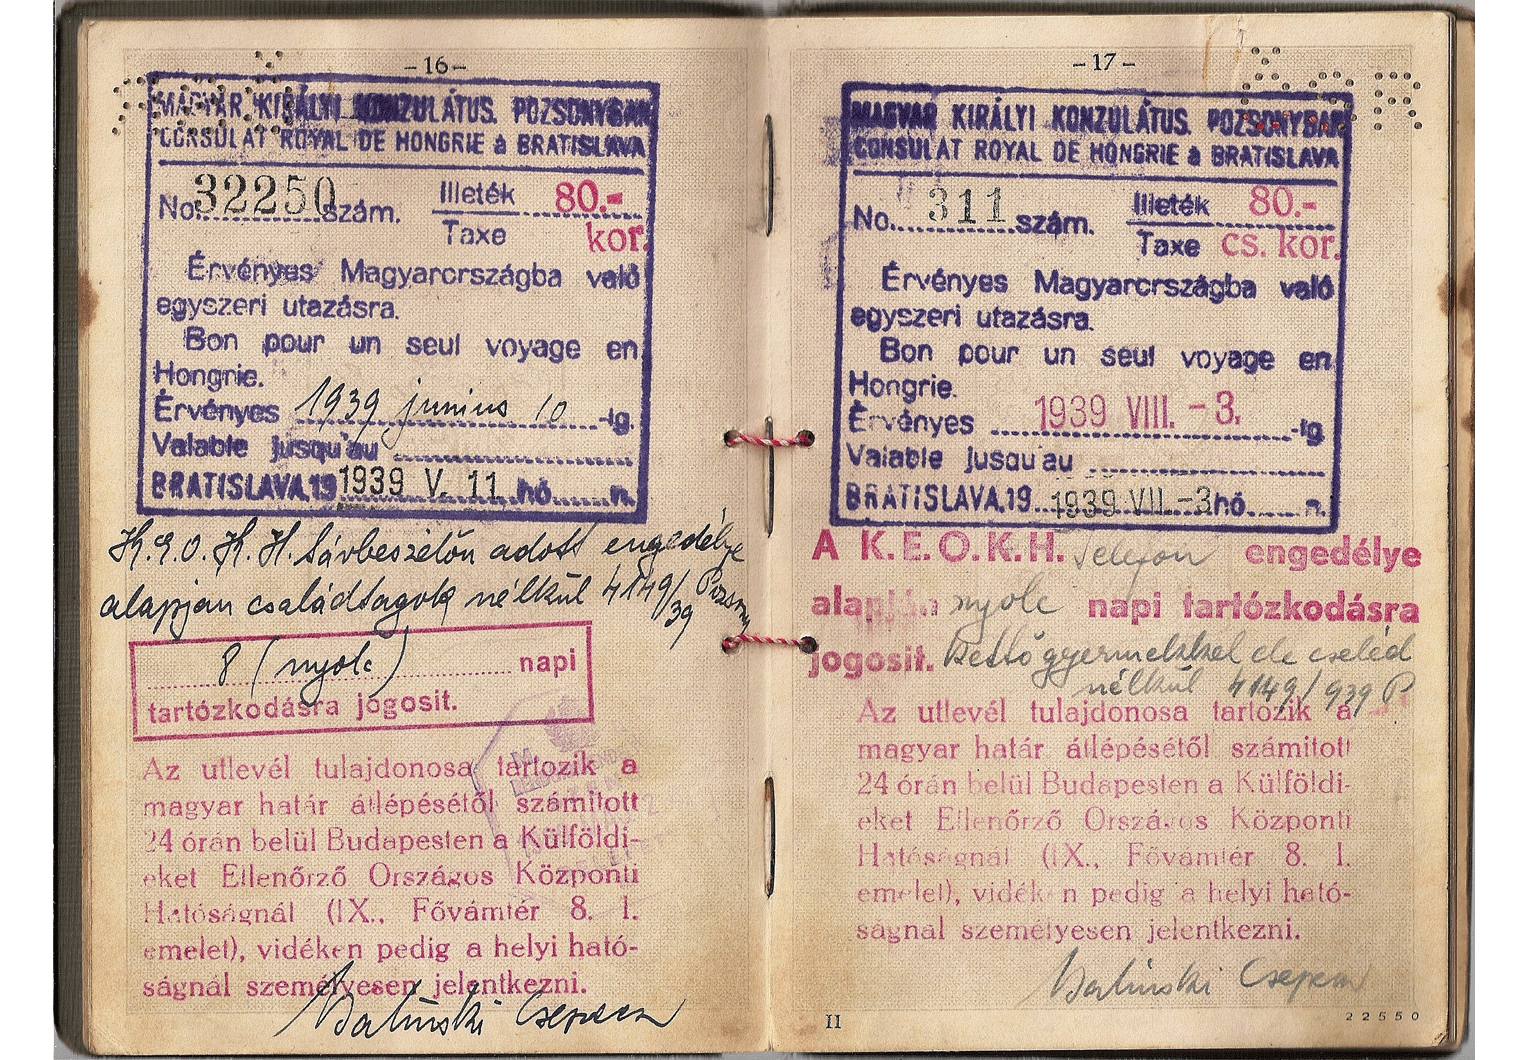 -16-
MAGYAR KIRÁLYI KONZULÁTUS. POZSONYBAN
CONSULAT ROYAL DE HONGRIE à BRATISLAVA
No. 32250 szám. Illeték 80.-
Taxe kor.
Érvényes Magyarországba való
egyszeri utazásra.
Bon pour un seul voyage en
Hongrie.
Érvényes 1939 junius 10 -ig.
Valable jusqu'au
BRATISLAVA, 19 1939 V. 11 hó n.
K.E.O.K.H. távbeszélőn adott engedélye
alapján családtagok nélkül 4149/39 Pozsony
8 (nyolc) napi
tartózkodásra jogosit.
Az utlevél tulajdonosa tartozik a
magyar határ átlépésétől számitott
24 órán belül Budapesten a Külföldi-
eket Ellenőrző Országos Központi
Hatóságnál (IX., Fővámtér 8. I.
emelet), vidéken pedig a helyi ható-
ságnál személyesen jelentkezni.
-17-
MAGYAR KIRÁLYI KONZULÁTUS. POZSONYBAN
CONSULAT ROYAL DE HONGRIE à BRATISLAVA
No. 311 szám. Illeték 80.-
Taxe cs. kor.
Érvényes Magyarországba való
egyszeri utazásra.
Bon pour un seul voyage en
Hongrie.
Érvényes 1939 VIII. -3. -ig
Valable jusqu'au
BRATISLAVA, 19 1939 VII. -3 hó n.
A K.E.O.K.H. telefon engedélye
alapján nyolc napi tartózkodásra
jogosit. Kettő gyermekkel de cseléd
nélkül 4149/939 P
Az utlevél tulajdonosa tartozik a
magyar határ átlépésétől számitott
24 órán belül Budapesten a Külföldi-
eket Ellenőrző Országos Központi
Hatóságnál (IX., Fővámtér 8. I.
emelet), vidéken pedig a helyi ható-
ságnál személyesen jelentkezni.
II
22550